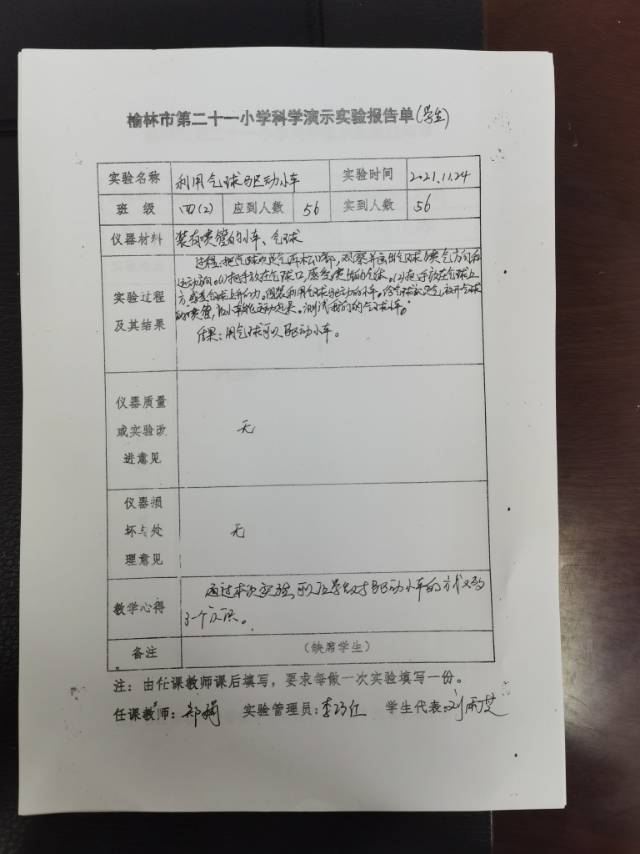 榆林市第二十一小学科学演示实验报告单(学生)
实验名称 利用气球驱动小车 实验时间 2021.11.24
班 级 四(2) 应到人数 56 实到人数 56
仪器材料 装有喷管的小车、气球
过程:把气球吹足气再松口部,观察并画出气球喷气方向和
运动方向。(1)把手放在气球口,感受喷出的气体。(2)把手放在气球上
实验过程
及其结果
结果:用气球可以驱动小车。
仪器质量
或实验改
进意见
无
仪器损
坏与处
理意见
无
教学心得
通过本次实验,可以让学生对驱动小车的方式又的
了一个认识。
备注 (缺席学生)
注:由任课教师课后填写,要求每做一次实验填写一份。
任课教师: 实验管理员: 学生代表: